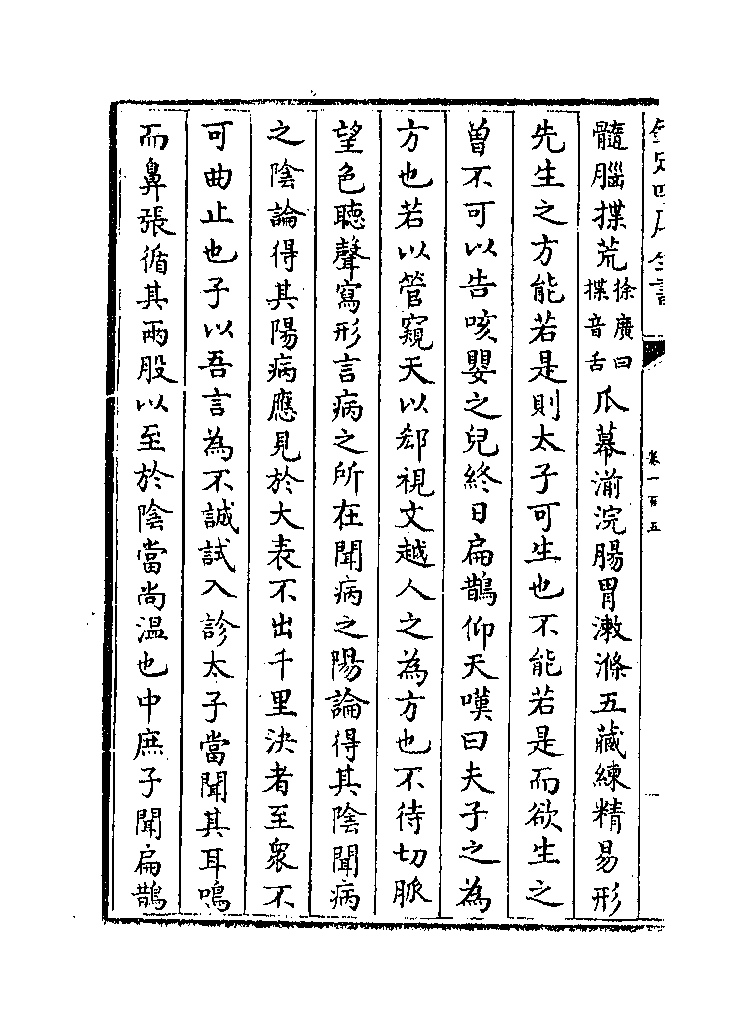 欽定四庫全書
卷一百五
髓腦揲荒徐廣曰揲音舌爪幕湔浣腸胃漱滌五藏練精易形
先生之方能若是則太子可生也不能若是而欲生之
曾不可以告咳嬰之兒終日扁鵲仰天嘆曰夫子之為
方也若以管窺天以郄視文越人之為方也不待切脈
望色聽聲寫形言病之所在聞病之陽論得其陰聞病
之陰論得其陽病應見於大表不出千里決者至衆不
可曲止也子以吾言為不誠試入診太子當聞其耳鳴
而鼻張循其兩股以至於陰當尚温也中庶子聞扁鵲